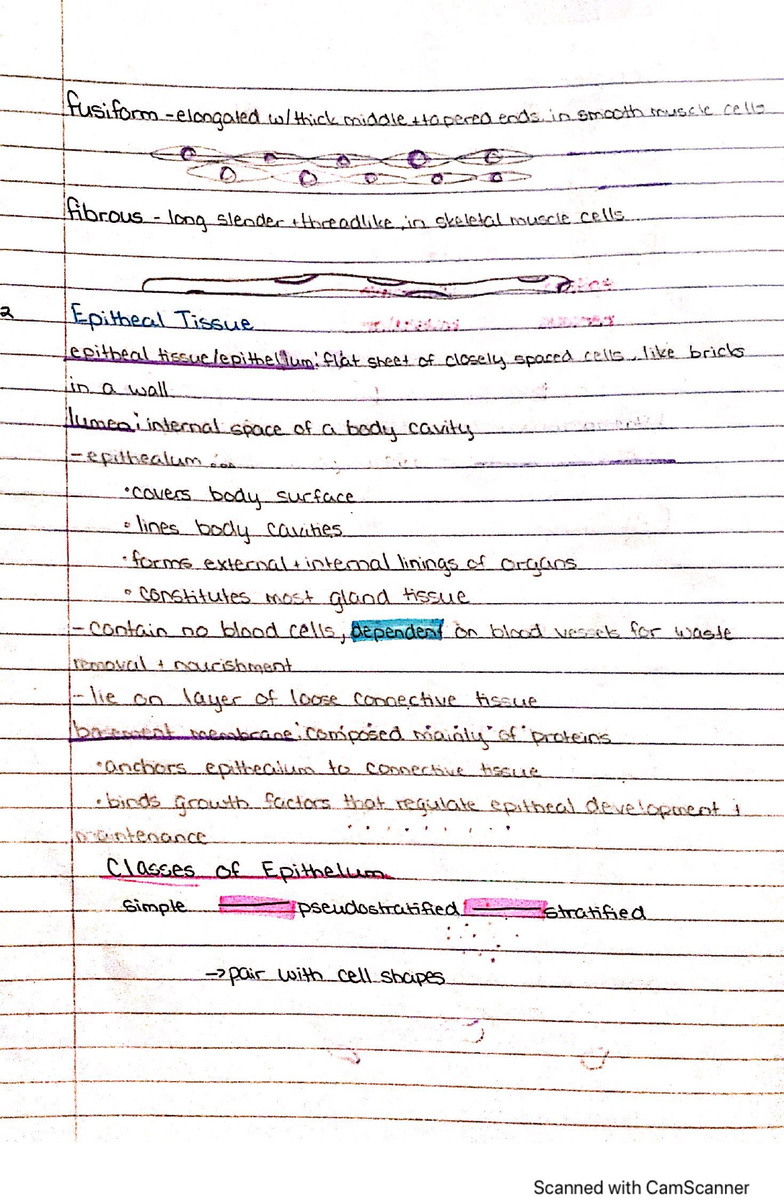 fusiform - elongated w/ thick middle + tapered ends, in smooth muscle cells
fibrous - long slender + threadlike, in skeletal muscle cells
2
Epitheal Tissue
epitheal tissue/epithelium: flat sheet of closely spaced cells, like bricks
in a wall
lumen: internal space of a body cavity
- epithealum...
• covers body surface
• lines body cavities
• forms external + internal linings of organs
• constitutes most gland tissue
- contain no blood cells, dependent on blood vessels for waste
removal + nourishment
- lie on layer of loose connective tissue
basement membrane: composed mainly of proteins
• anchors epithealium to connective tissue
• binds growth factors that regulate epitheal development +
maintenance
Classes of Epithelum
simple — pseudostratified — stratified
→ pair with cell shapes
Scanned with CamScanner